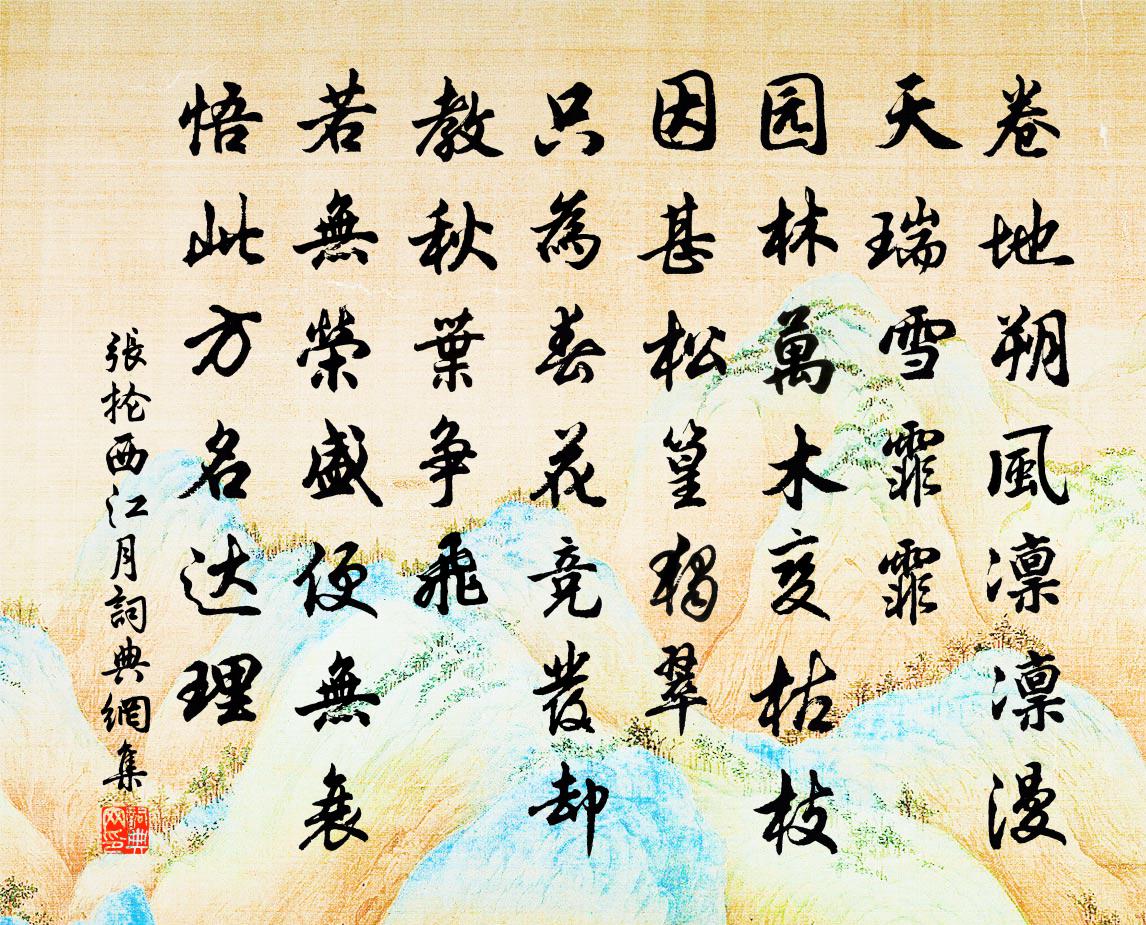 卷地朔風凛凛漫
天瑞雪霏霏
园林萬木变枯枝
因甚松篁独翠
只為春花竞發却
教秋葉争飛
若無榮盛便無衰
悟此方名达理
張抡西江月詞典網集
詞典网印